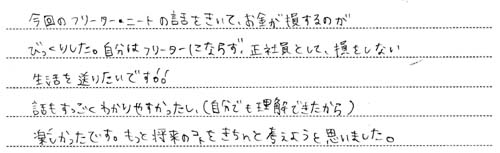 今回のフリーター・ニートの話をきいて、お金が損するのが
びっくりした。自分はフリーターにならず、正社員として、損をしない
生活を送りたいです!!
話もすっごくわかりやすかったし、(自分でも理解できたから)
楽しかったです。もっと将来のことをきちんと考えようと思いました。